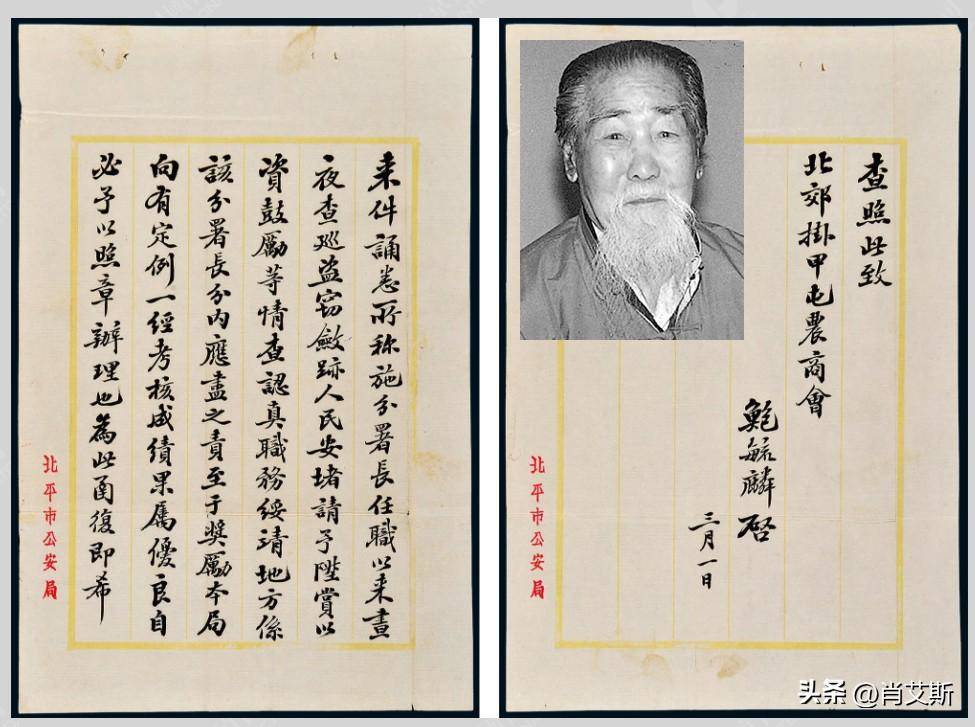 来件誦悉所称施分署長任職以来晝
夜查巡盜窃斂跡人民安堵請予陞賞以
資鼓厲等情查認真職務綏靖地方係
該分署長分內應盡之責至于奬厲本局
向有定例一經考核成績果属優良自
必予以照章辦理也為此函復即希
北平市公安局
查照此致
北郊掛甲屯農商會
鮑毓麟啓
三月一日
北平市公安局
头条 @肖艾斯